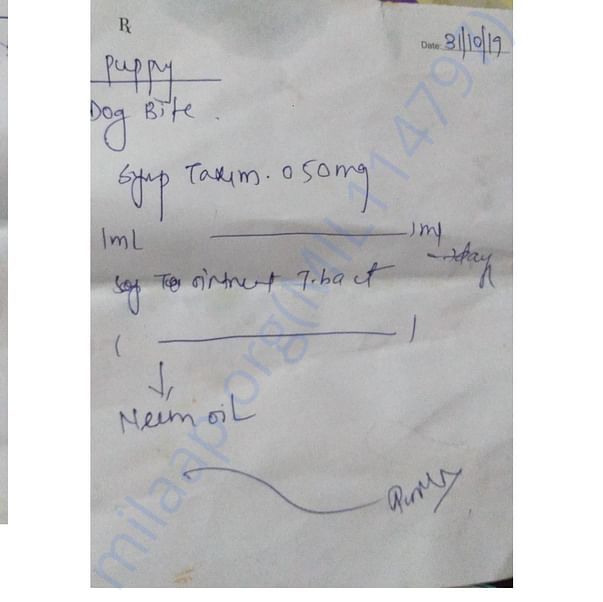 R
Date: 31/10/19
Puppy
Dog Bite.
Syrup Taxim. O 50mg
1mL ———— 1ml
day
ointment T-bact
1 ———— 1
↓
Neem oil
milaap.org(MIL11479